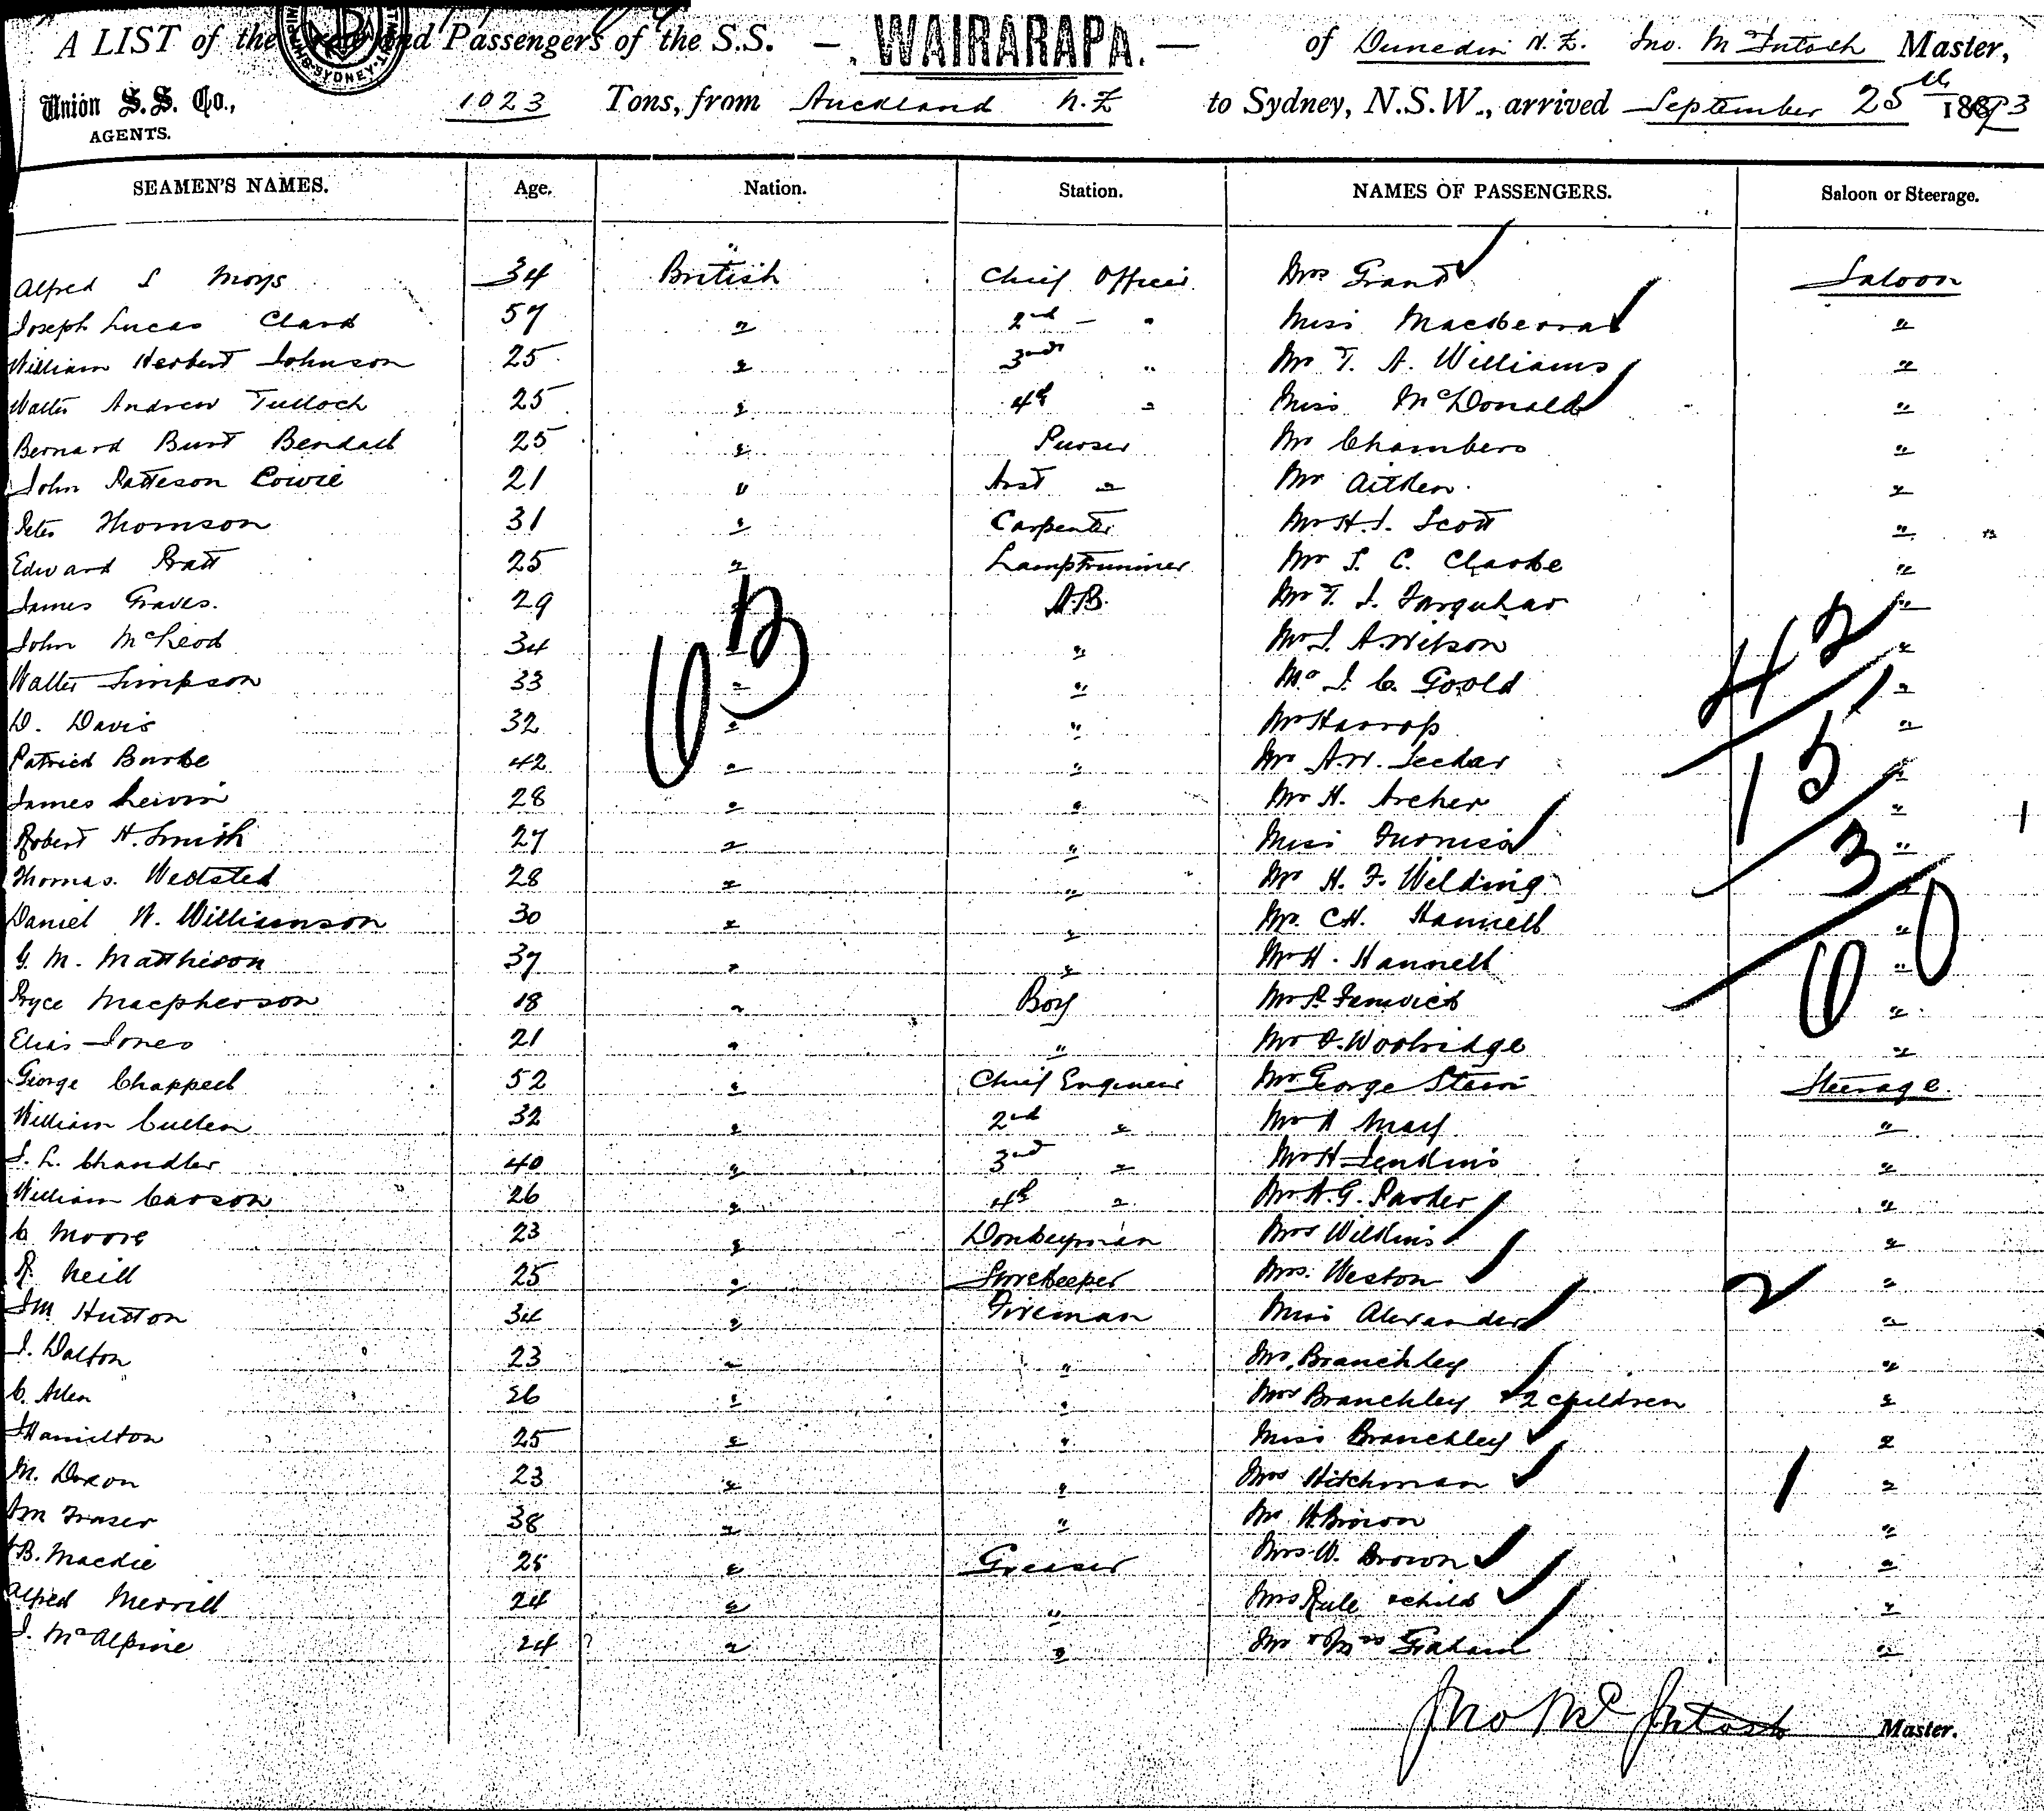 A LIST of the Crew and Passengers of the S.S. - WAIRARAPA. - of Dunedin N.Z. Jno. McIntosh Master,
Union S.S. Co., AGENTS. 1023 Tons, from Auckland N.Z to Sydney, N.S.W., arrived September 25th 1893
SEAMEN'S NAMES. Age. Nation. Station. NAMES OF PASSENGERS. Saloon or Steerage.
Alfred S Moys 34 British Chief Officer Mrs Grant Saloon
Joseph Lucas Clark 57 " 2nd - " Miss "
William Herbert Johnson 25 " 3rd " Mr T. A. Williams "
Walter Andrew Tulloch 25 " 4th " Miss McDonald "
Bernard Burt Bendall 25 " Purser Mr Chambers "
John Patteson Cowie 21 " Asst " Mr Aitken "
Peter Thomson 31 " Carpenter Mr H. J. Scott "
Edward Pratt 25 " Lamptrimmer Mr S. C. Clarke "
James Graves. 29 " A.B. Mr T. J. Farquhar "
John McLeod 34 " " Mr J. A. Wilson "
Walter Simpson 33 " " Mr J. C. Goold "
D. Davis 32 " " Mr Harrop "
Patrick Burke 42 " " Mr A.W. "
James 28 " " Mr H. Archer "
Robert H. Smith 27 " " Miss "
Thomas. 28 " " Mr H. F. Wilding "
Daniel W. Williamson 30 " " Mr. C.H. Hannell "
G. M. Matthison 37 " " Mr H. Hannell "
Pryce Macpherson 18 " Boy Mr P. Fenwick "
Elias Jones 21 " " Mr F. Woolridge "
George Chappell 52 " Chief Engineer Mr George Steain Steerage.
William Cullen 32 " 2nd " Mr A May "
J. L. Chandler 40 " 3rd " Mr H Jenkins "
William Carson 26 " 4th " Mr H. G. Parker "
C. Moore 23 " Donkeyman Mrs Wilkins "
R. Neill 25 " Storekeeper Mrs. Weston "
Jm Hutton 34 " Fireman Miss Alexander "
J. Dalton 23 " " Mr. Branchley "
C. Allen 26 " " Mrs Branchley & 2 children "
J Hamilton 25 " " Miss Branchley "
M. Dixon 23 " " Mrs Hitchman "
Jm Fraser 38 " " Mr H Brown "
B. Mackie 25 " Greaser Mrs W. Brown "
Alfred Merrill 24 " " Mrs Rule & child "
J. McAlpine 24 " " Mr & Mrs Graham "
63
42
15
3
60
2
1
Jno McIntosh Master.